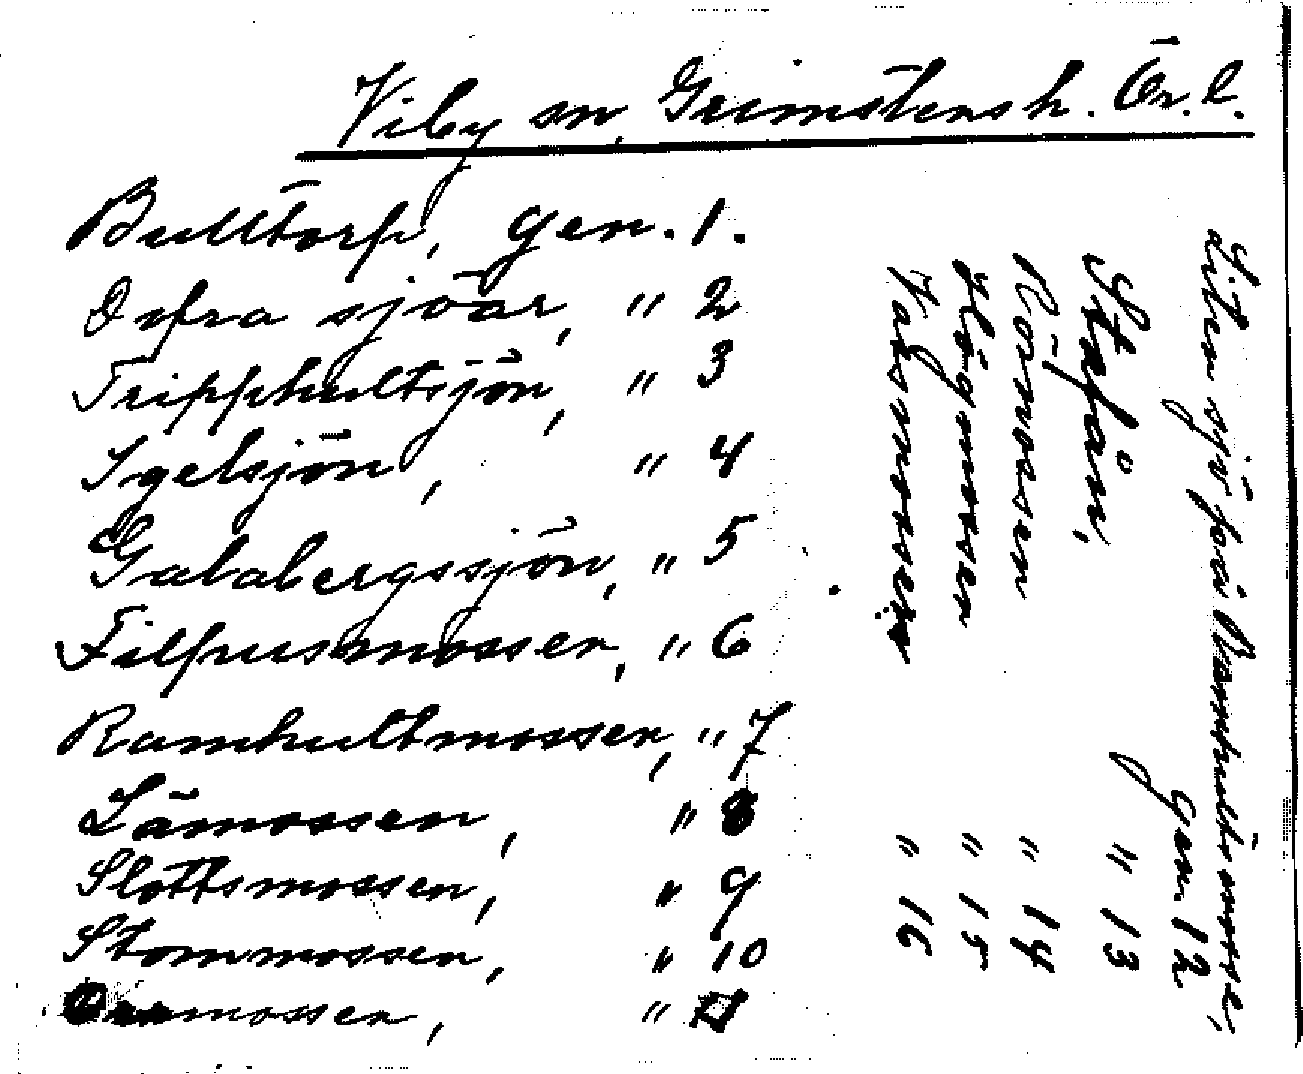 Viby sn, Grimstens h. Ör. l.
Bulltorp, gen. 1.
Dofra sjöar, " 2
Tripphultsjön, " 3
Igelsjön, " 4
Gatabergssjön, " 5
Filpusmossen, " 6
Ramhultmossen, " 7
Lämossen, " 8
Slottsmossen, " 9
Stommossen, " 10
mossen, "
Liten sjö på Ramhultsmosse,
gen. 12
Stafån, " 13
Rörmossen " 14
Högmossen " 15
Valsmossen " 16